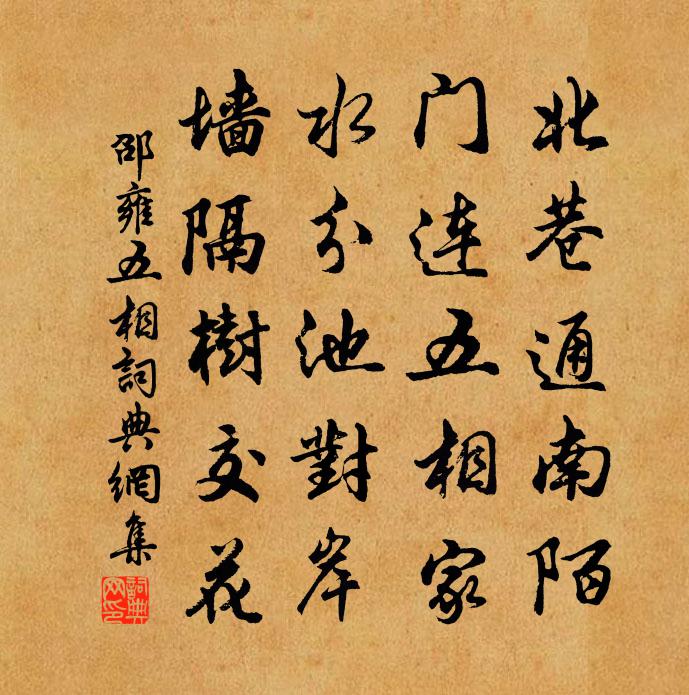 北巷通南陌
门连五相家
水分池對岸
墙隔樹交花
邵雍五相詞典網集
詞典网印